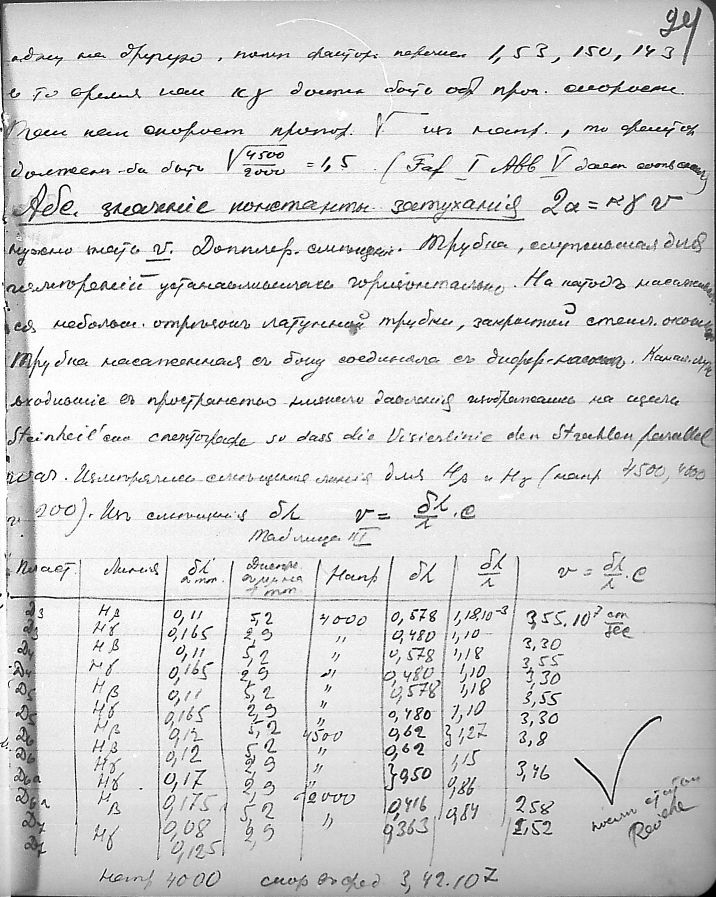 94
одну на другую, фактор 1,53, 150, 143
в то время как κγ должен быть обр проп. скорости
скорост пропор. √ из напр., то фактор
должен-бы быть √4500/2000 = 1,5. (Taf I Abb V дает
Абс. значенiе константы затуханiя 2α = κγ v
нужно знать v. Допплер. смещен. Трубка, служившая для
измеренiй устанавливалась горизонтально. На катодъ насажива
ся небольш. отрезокъ латунной трубки, закрытой стекл. окош
Трубка насаженная съ боку соединена съ дифф-насос. Канал. лучи
входившiе въ пространство низкаго давленiя изображались на щели
Steinheil'ева спектрографа so dass die Visierlinie den Strahlen parallel
war. Измерялись смещенiя линiй для Hβ и Hγ (напр 4500, 4000
200). Изъ смещенiя δλ v = δλ/λ · c
Таблица III
Пласт. Линiя δλ mm. Напр δλ δλ/λ v = δλ/λ · c
D3 Hβ 0,11 5,2 4000 0,578 1,18.10⁻³ 3,55.10⁷ cm/sec
D3 Hγ 0,165 2,9 " 0,480 1,10 3,30
D4 Hβ 0,11 5,2 " 0,578 1,18 3,55
D4 Hγ 0,165 2,9 " 0,480 1,10 3,30
D5 Hβ 0,11 5,2 " 0,578 1,18 3,55
D5 Hγ 0,165 2,9 " 0,480 1,10 3,30
D6 Hβ 0,12 5,2 4500 0,62 } 1,27 3,8
D6 Hβ 0,12 5,2 " 0,62
D6a Hγ 0,17 2,9 " } 0,50 1,15 3,46
D6a Hγ 0,175 2,9 "
D7 Hβ 0,08 5,2 2000 0,416 0,86 2,58
D7 Hγ 0,125 2,9 " 0,363 0,84 2,52
Reviche
напр 4000 скор 3,42.10⁷